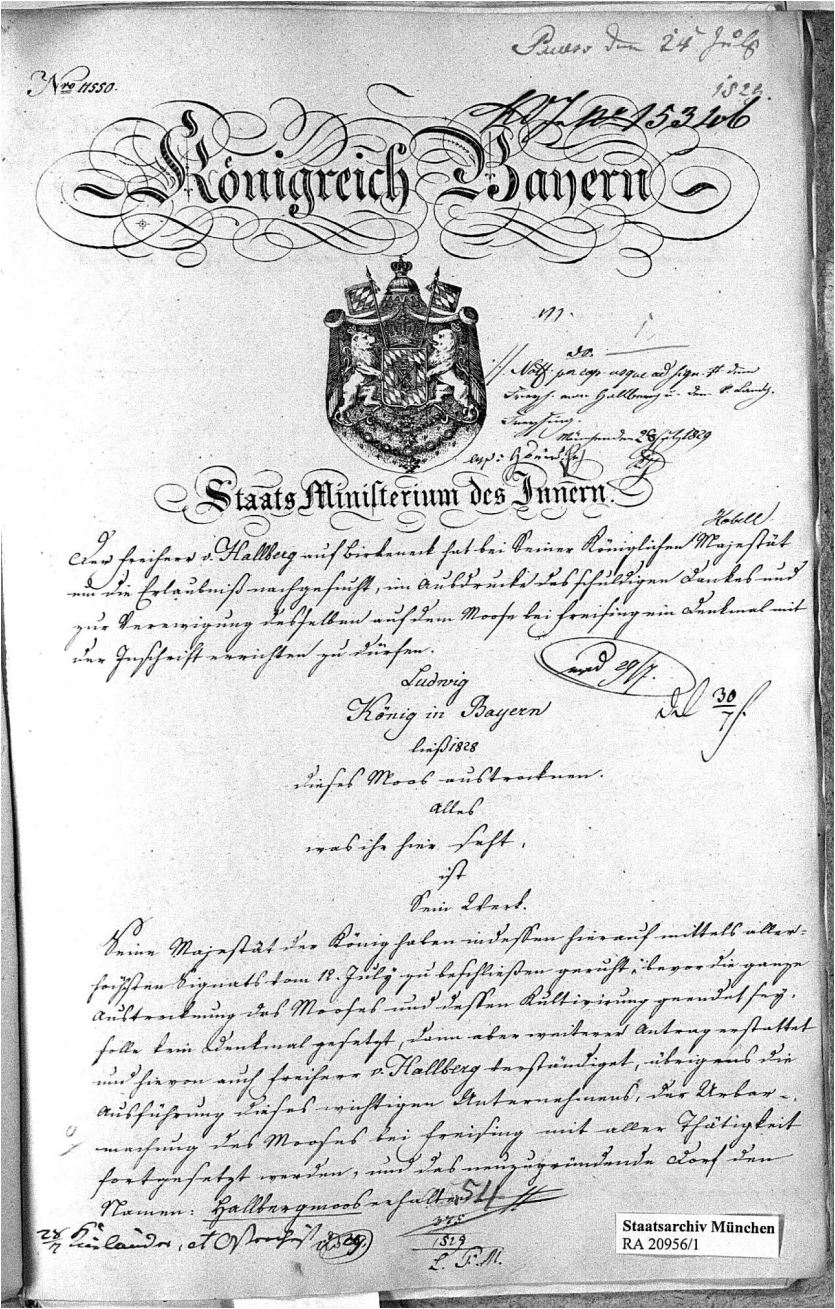 den 24 July
1829.
Nro 11550.
Königreich Bayern
ad.
Freyh. von Hallberg u. den k. Landg.
Freysing.
München den 28 July 1829
Staats Ministerium des Innern.
Der Freiherr v. Hallberg auf Birkeneck hat bei Seiner Königlichen Majestät
um die Erlaubniß nachgesucht, im Ausdrucke des schuldigen Dankes und
zur Verewigung desselben auf dem Moose bei Freising ein Denkmal mit
der Inschrift errichten zu dürfen.
29/7.
30
7
Ludwig
König in Bayern
ließ 1828
dieses Moos austrocknen.
Alles
was ihr hier seht,
ist
Sein Werk.
Seine Majestät der König haben indessen hierauf mittels aller-
höchsten Signats vom 12. July zu beschließen geruht, bevor die ganze
Austrocknung des Mooses und dessen Kultivirung geendet sey,
solle kein Denkmal gesetzt, dann aber weiterer Antrag erstattet
und hievon auch Freiherr v. Hallberg verständiget, übrigens die
Ausführung dieses wichtigen Unternehmens, der Urbar-
machung des Mooses bei Freising mit aller Thätigkeit
fortgesetzt werden, und das neuzugründende Dorf den
Namen: Hallbergmoos erhalten.
54
375
1529
28
7
Staatsarchiv München
RA 20956/1